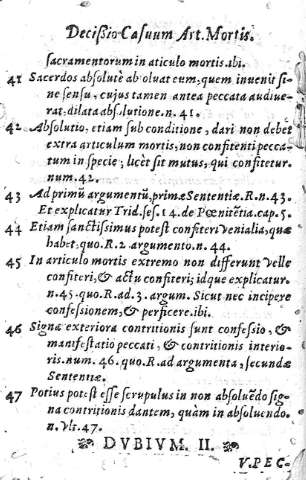 Decissio Casuum Art. Mortis.
sacramentorum in aticulo mortis. ibi.
41 Sacerdos absolutè absoluat eum, quem inuenit si-
ne sensu, cujus tamen antea peccata audiue-
rat, dilata absolutione. n. 41.
42 Absolutio, etiam sub conditione, dari non debet
extra articulum mortis, non confitenti pecca-
tum in specie; licèt sit mutus, qui confitetur.
num. 42.
43 Ad primũ argumentũ, primæ Sententiæ. R. n. 43.
Et explicatur Trid. ses. 14. de Pœnitẽtia. cap. 5.
44 Etiam sanctissimus potest confiteri Venialia, quæ
habet, quo. R. 2. argumento. n. 44.
45 In articulo mortis extremo non differunt Velle
confiteri, & actu confiteri; idque explicatur.
n. 45. quo. R. ad. 3. argum. Sicut nec incipere
confessionem, & perficere. ibi.
46 Signa exteriora contritionis sunt confessio, &
manifestatio peccati, & contritionis interio-
ris. num. 46. quo. R. ad argumenta, secundæ
Sententiæ.
47 Potius potest esse scrupulus in non absoluẽdo si-
gna contritionis dantem, quàm in absoluendo.
n. Vlt. 47.
DVBIVM. II.
V. PEC-